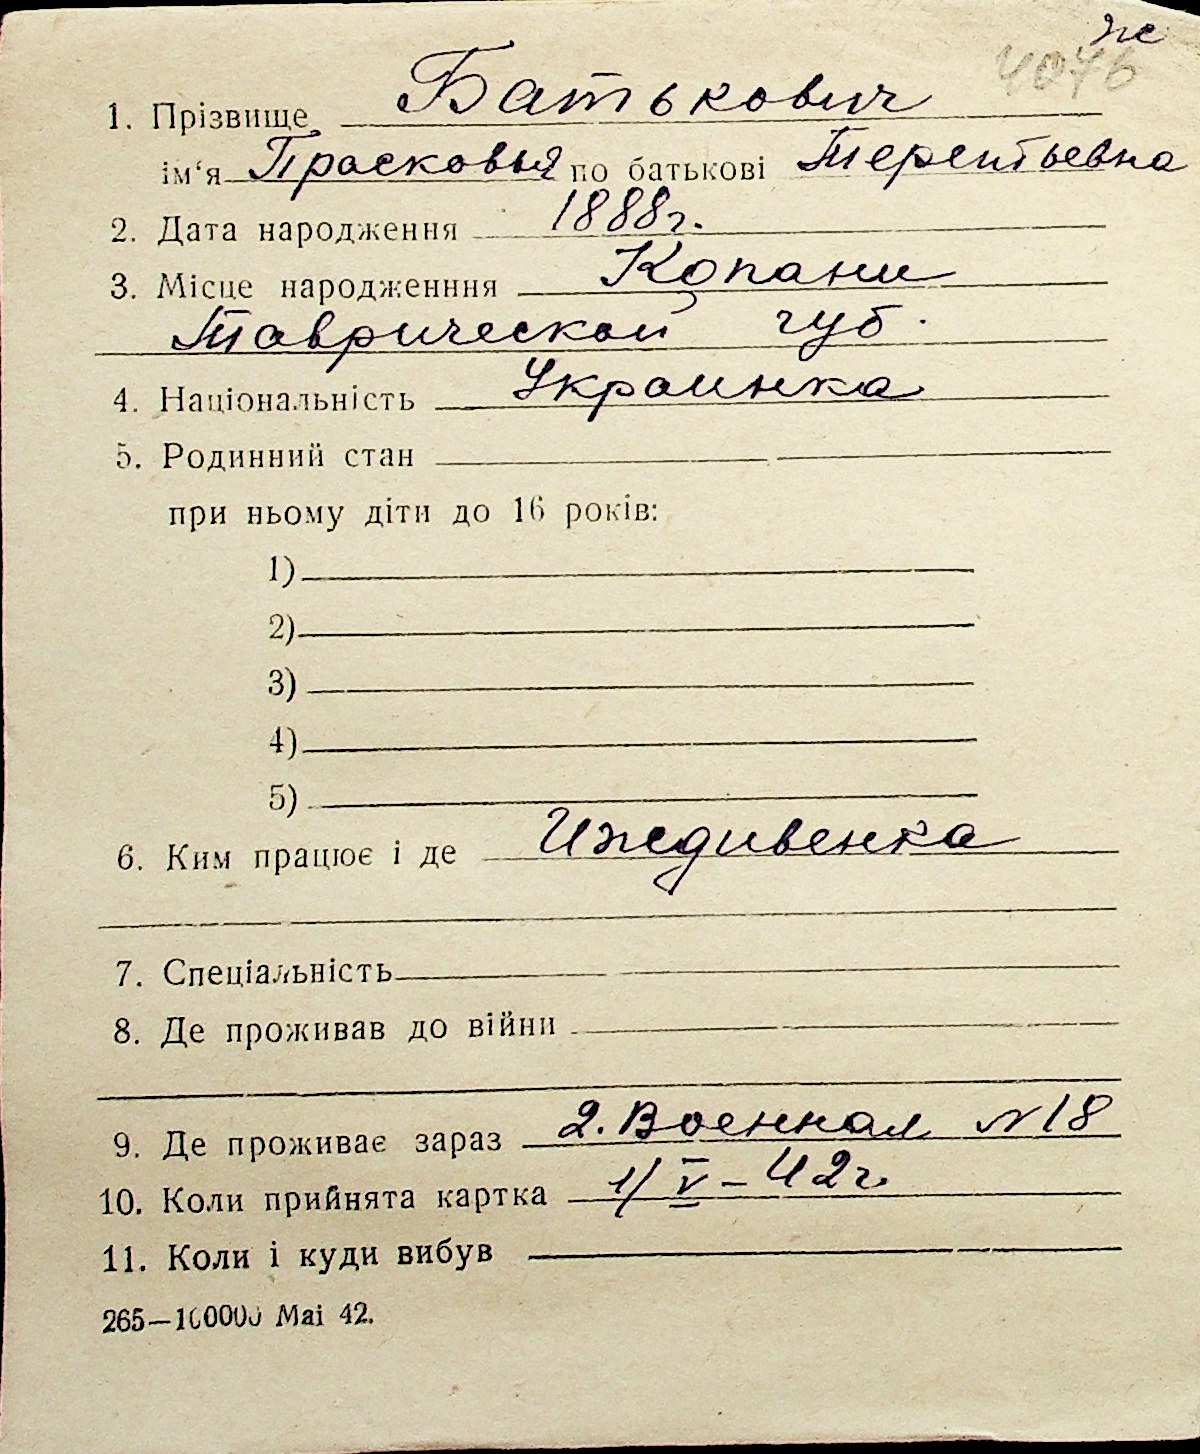 ж
4076
1. Прізвище Батькович
ім‘я Прасковья по батькові Терентьевна
2. Дата народження 1888г.
3. Місце народженння Копани
Таврической губ.
4. Національність Украинка
5. Родинний стан
при ньому діти до 16 років:
1)
2)
3)
4)
5)
6. Ким працює і де Иждивенка
7. Спеціальність
8. Де проживав до війни
9. Де проживає зараз 2. Военная №18
10. Коли прийнята картка 1/V–42г.
11. Коли і куди вибув
265—100000 Mai 42.